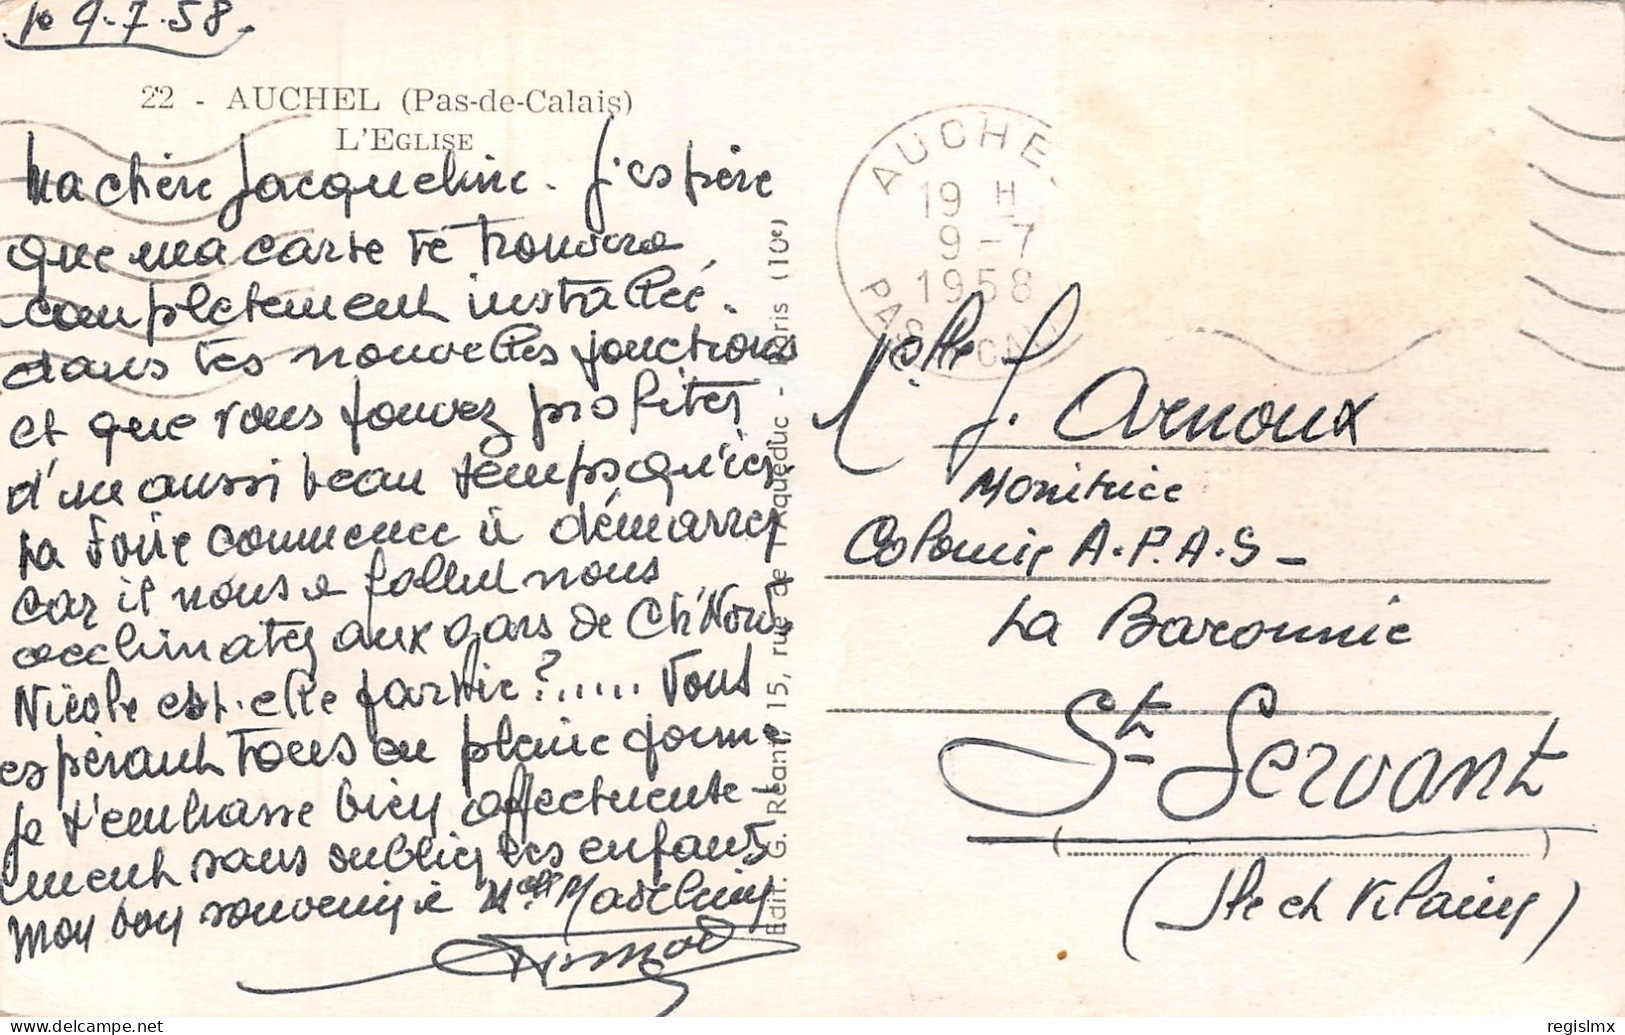 le 9-7-58.
22 - AUCHEL (Pas-de-Calais)
L'EGLISE
Ma chère Jacqueline. J'espère
que ma carte te trouvera
complètement installée.
dans tes nouvelles fonctions
et que vous pouvez profiter
d'un aussi beau temps qu'ici.
La Foire commence à démarrer
car il nous a fallut nous
acclimater aux gars de Ch'Nord.
Nicole est-elle partie ?...... Vous
espérant tous en pleine forme
Je t'embrasse bien affectueuse-
ment sans oublier les enfants
Mon bon souvenir à Melle Madeleine
Edit. G. Réant, 15, rue de l'Aqueduc - Paris (10e)
AUCHE
19 H
9-7
1958
PAS CAL
Melle J. Arnoux
Monitrice
Colonie A.P.A.S-
La Baronnie
St-Servant
(Ile et Vilaine)
Delcampe.net
regislmx